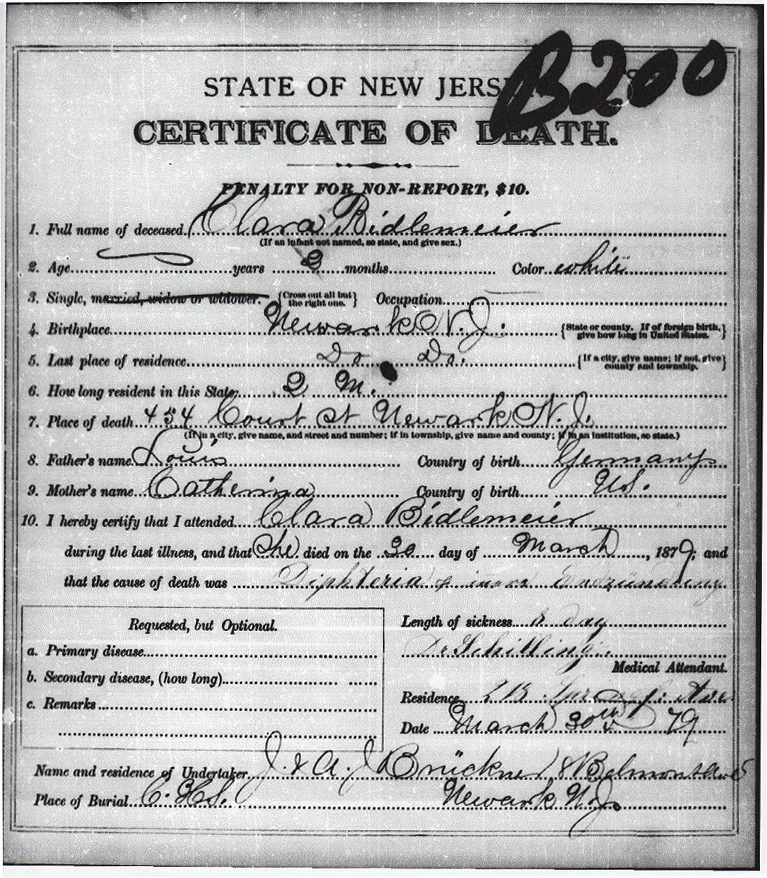 B200
STATE OF NEW JERS
CERTIFICATE OF DEATH.
PENALTY FOR NON-REPORT, $10.
1. Full name of deceased Clara Bidlemeier
(If an infant not named, so state, and give sex.)
2. Age years 2 months Color white
3. Single, married, widow or widower. {Cross out all but the right one.} Occupation
4. Birthplace Newark N.J. {State or county. If of foreign birth, give how long in United States.
5. Last place of residence Do Do. {If a city, give name; if not, give county and township.
6. How long resident in this State 2 M.
7. Place of death 454 Court St Newark N.J.
(If in a city, give name, and street and number; if in township, give name and county; if in an institution, so state.)
8. Father's name Louis Country of birth Germany
9. Mother's name Catherina Country of birth U.S.
10. I hereby certify that I attended Clara Bidlemeier
during the last illness, and that She died on the 30 day of March, 1879; and
that the cause of death was Diphteria
Requested, but Optional.
a. Primary disease
b. Secondary disease, (how long)
c. Remarks
Length of sickness 8 day
Dr Schilling
Medical Attendant.
Residence
Date March 30th 79
Name and residence of Undertaker J. & A. J. Brückner Belmont Ave
Place of Burial C.H.S. Newark N.J.